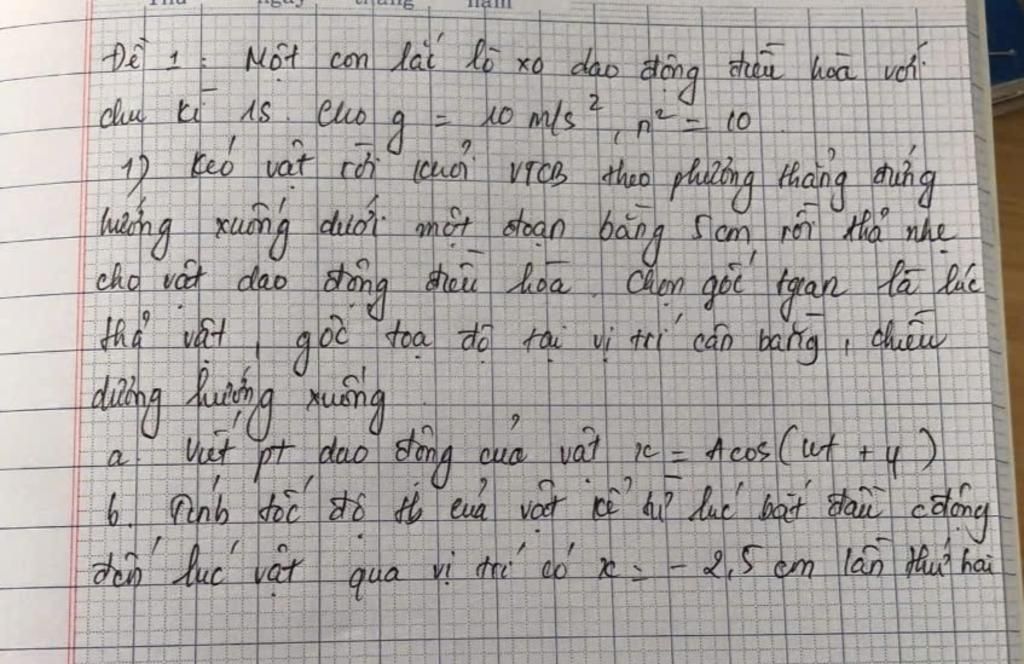 Thứ ngày tháng năm
Đề 1: Một con lắc lò xo dao động điều hoà với
chu kì 1s. Cho g = 10 m/s², π² = 10
1) Kéo vật rời khỏi VTCB theo phương thẳng đứng
hướng xuống dưới một đoạn bằng 5cm, rồi thả nhẹ
cho vật dao động điều hòa. Chọn gốc tgian là lúc
thả vật, gốc toạ độ tại vị trí cân bằng, chiều
dương hướng xuống
a. Viết pt dao động của vật x = Acos(ωt + φ)
b. Tính tốc độ tb của vật kể từ lúc bắt đầu cđộng
đến lúc vật qua vị trí có x = - 2,5 cm lần thứ hai